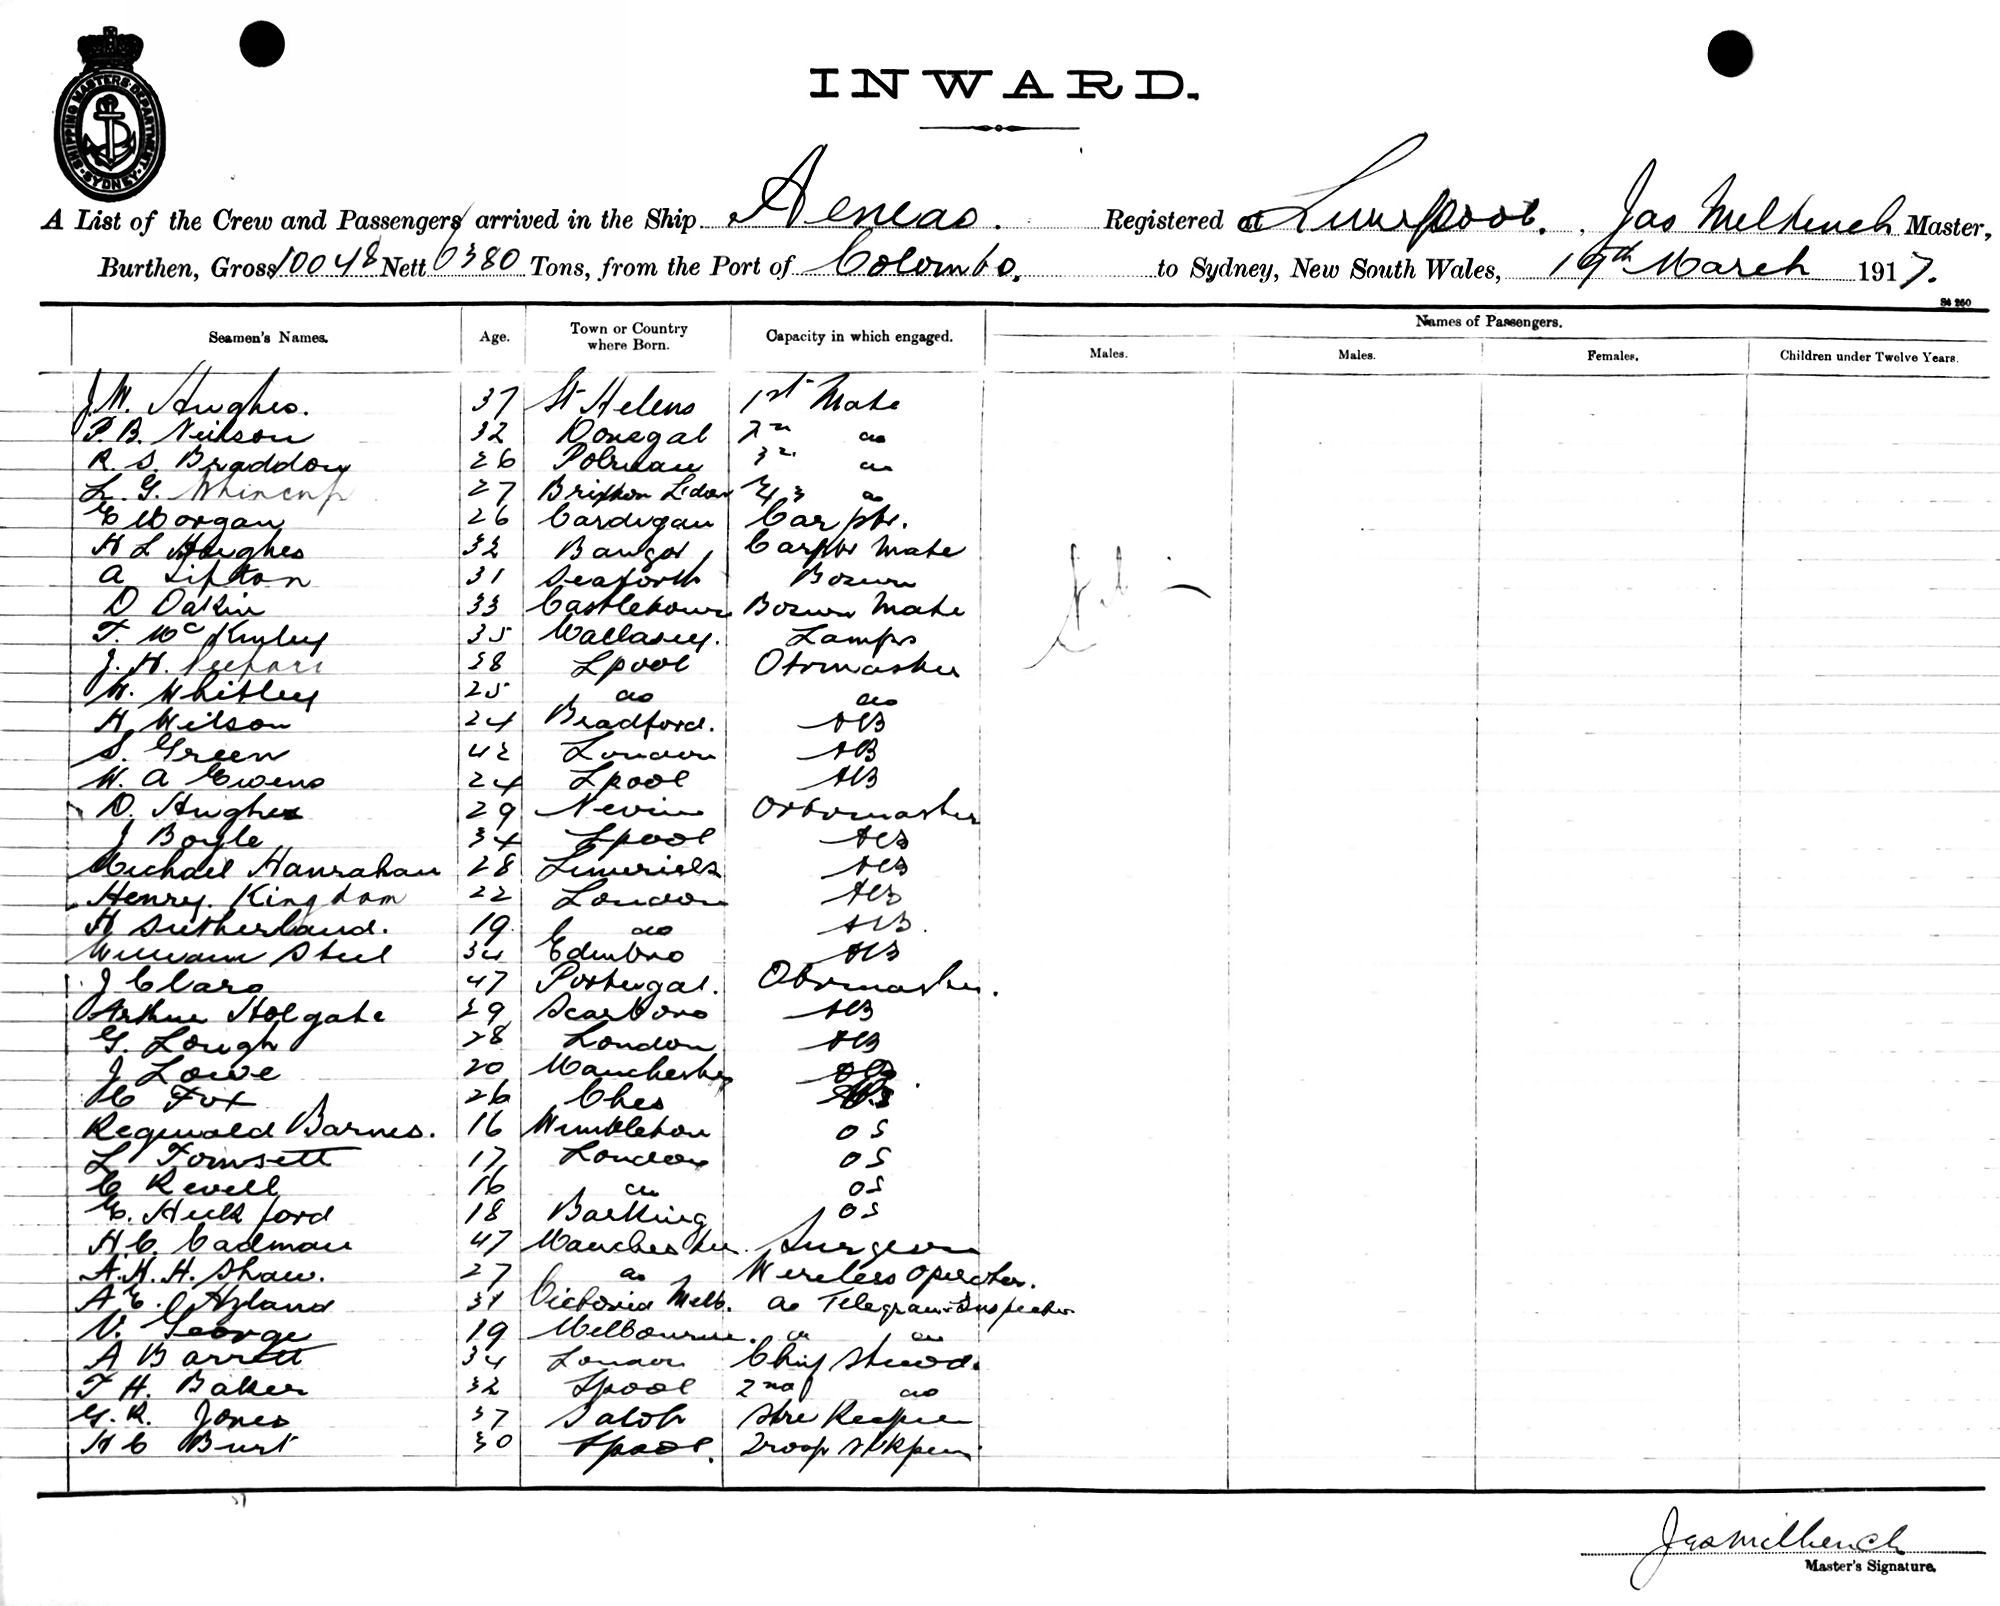 SHIPPING MASTERS DEPARTMENT SYDNEY
INWARD.
A List of the Crew and Passengers arrived in the Ship Aeneas. Registered at Liverpool. Jas Melhench Master,
Burthen, Gross 10048 Nett 6380 Tons, from the Port of Colombo. to Sydney, New South Wales, 19th March 1917.
Seamen's Names. Age. Town or Country where Born. Capacity in which engaged. Names of Passengers.
Males. Males. Females. Children under Twelve Years.
J. W. Hughes. 37 St Helens 1st Mate
P. B. Neilson 32 Donegal 2nd do
R. S. Braddon 26 Polruan 3rd do
L. G. Whincup 27 Brixton Ldon 4th do
E Morgan 26 Cardigan Carptr.
H L Hughes 32 Bangor Carptr Mate
A Lipton 31 Seaforth Bosun
D Dakin 33 Bosun Mate
T. McKinley 35 Wallasey. Lamps
J. H. 38 Lpool Qtrmaster
W. Whitley 25 do do
H Wilson 24 Bradford. AB
S. Green 42 London AB
W. A Owens 24 Lpool AB
D. Hughes 29 Nevin Qrtrmaster
J Boyle 34 Lpool AB
Michael Hanrahan 28 Limerick AB
Henry. Kingdom 22 London AB
H Sutherland. 19 do AB.
William Steel 34 Edinbro AB
J Claro 47 Portugal. Qtrmaster.
Arthur Holgate 29 Scarboro AB
G. Lough 28 London AB
J Lowe 20 Manchester
C Fox 26 Ches
Reginald Barnes. 16 Wimbleton OS
L Fomsett 17 London OS
C Revell 16 do OS
E. Huckford 18 Barking OS
H. C. Cadman 47 Manchester. Surgeon
A. H. H. Shaw. 27 do Wireless Operator.
A E. Hyland 31 Victoria Melb. do Telegram Inspector
V. George 19 Melbourne. do do
A Barrett 34 London Chief Steward.
T H. Baker 32 Lpool 2nd do
G. R. Jones 37 Salop Stre Keeper
H C Burt 30 Lpool. Troop StrKper
Jas Melhench
Master's Signature.